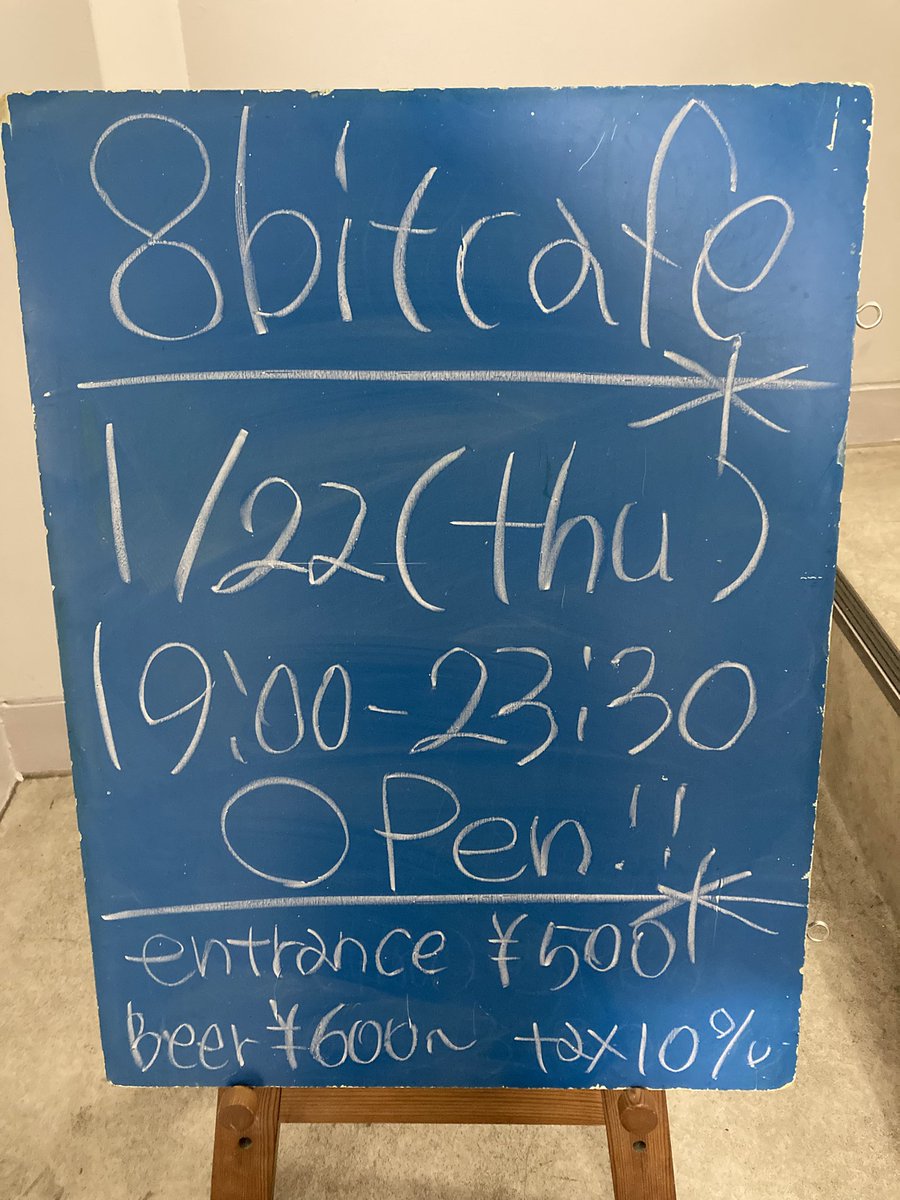 8bitcafe
1/22(thu)
19:00-23:30
OPen!!
entrance ¥500
Beer ¥600~ tax10%